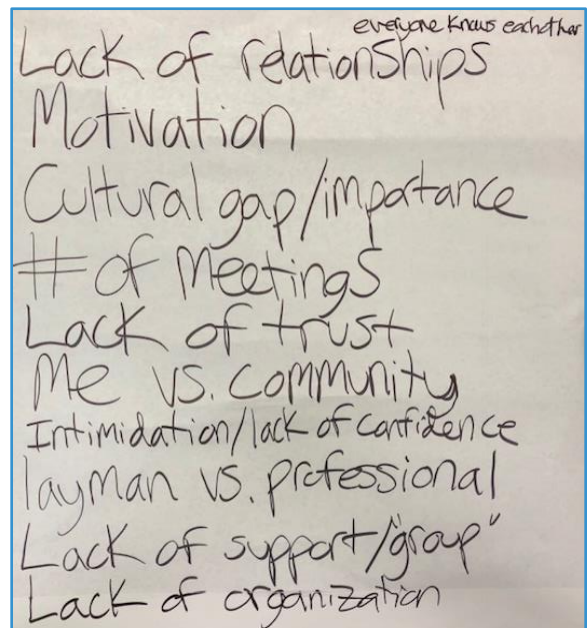 everyone knows eachother
Lack of relationships
Motivation
Cultural gap/importance
# of Meetings
Lack of trust
Me vs. community
Intimidation/lack of confidence
layman vs. professional
Lack of support/"group"
Lack of organization